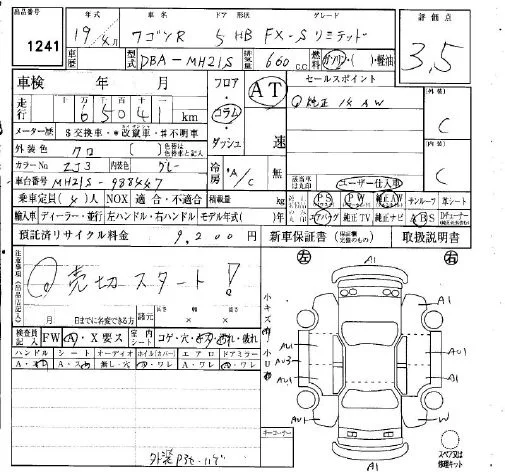 出品番号 1241
年式 19年 月
車名 ワゴンR
ドア 形状 5 HB
グレード FX-Sリミテッド
評価点 3,5
車歴
型式 DBA-MH21S
排気量 660 CC
燃料 ガソリン・( )・軽油
車検 年 月
フロア・コラム・ダッシュ
AT 速
セールスポイント
①純正 14 AW
走行 65041 km
メーター履歴 $交換車・*改竄車・#不明車
外装色 クロ
カラーNo. ZJ3 内装色 グレー
冷房 A/C 無
外装 C
内装 C
車台番号 MH21S-988447
該当車は丸印 ユーザー仕入車
乗車定員(4)人 NOX 適合・不適合 積載量 kg
PS PW 純正AW サンルーフ 革シート
輸入車 ディーラー・並行 左ハンドル・右ハンドル モデル年式( )年
エアバッグ 純正TV 純正ナビ ABS
預託済リサイクル料金 9,200円
新車保証書 取扱説明書
注意事項
①売切スタート!
月 日までに名変できる方
諸元 長さ 幅 高さ × ×
検査員記入 FW A・X要ス 室内シート コゲ・穴・汚れ・破れ
ハンドル シート オーディオ ホイル(カバー) エアロ ドアミラー
無し・穴 ワレ ワレ ワレ
外装
コーナー
小キズ 小凹
左 右
A1
A1
AU1
AU3
AU1
AU1
A1
AU1
A1
W
A1
スペア又は修理キット